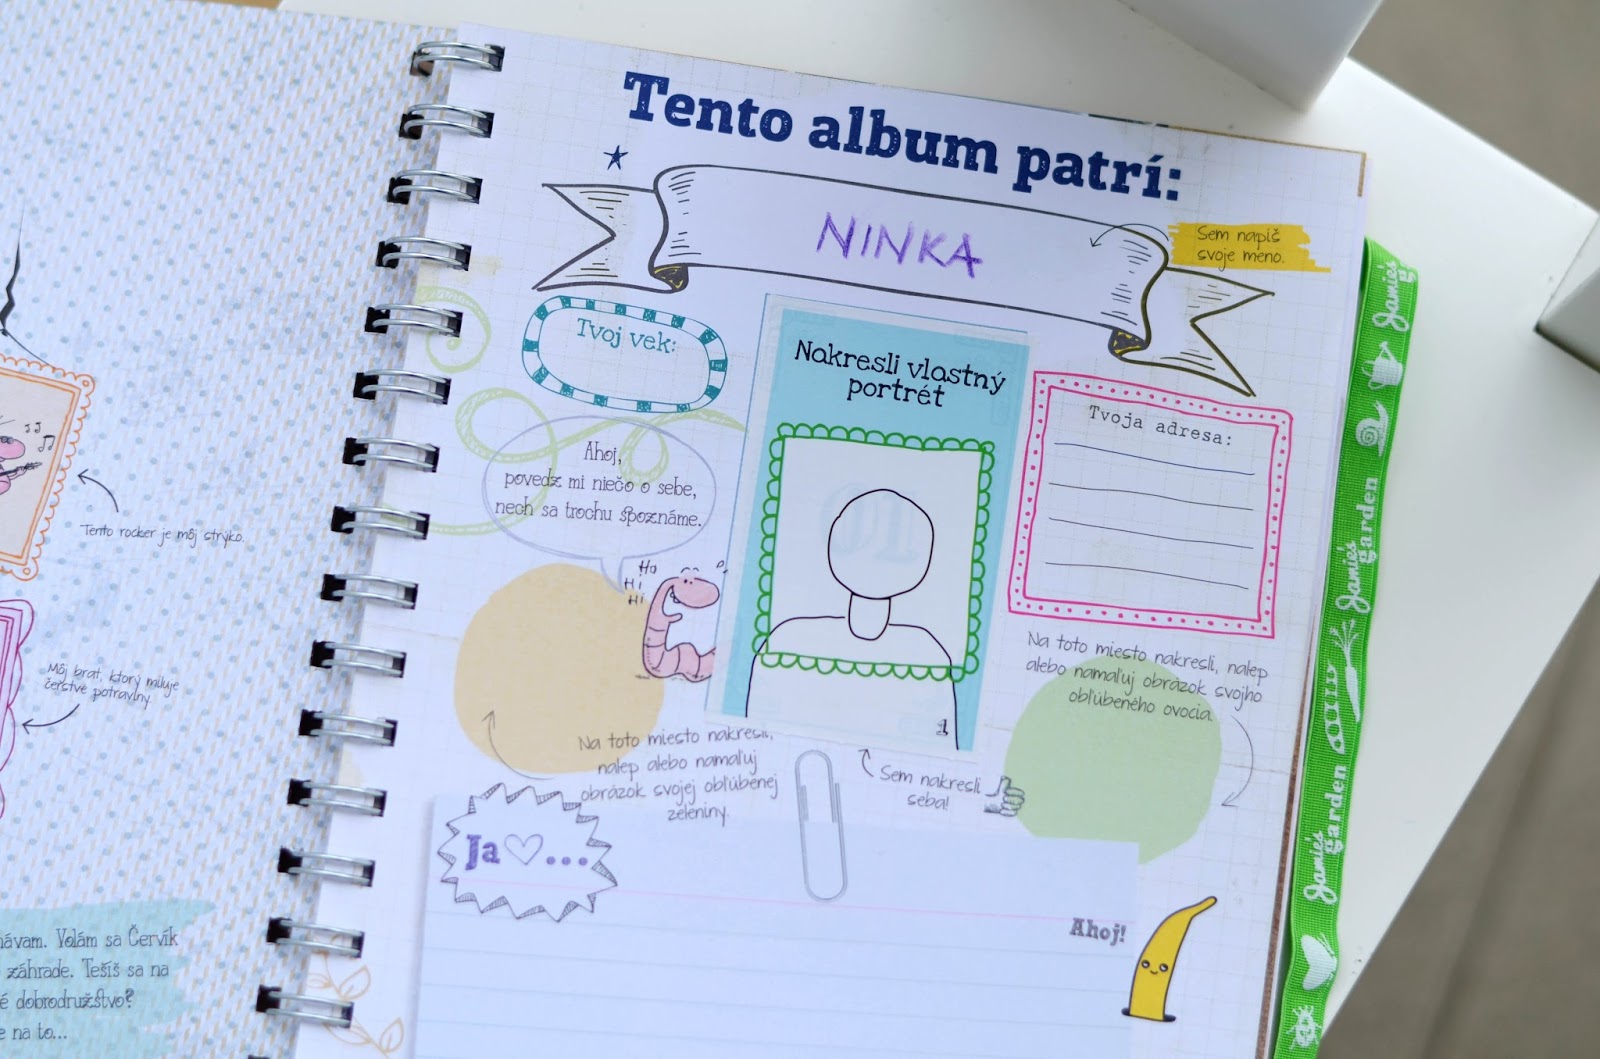 Tento rocker je môj strýko.
Môj brat, ktorý miluje
čerstvé potraviny.
Volám sa Červík
záhrade. Tešíš sa na
dobrodružstvo?
na to...
Tento album patrí:
NINKA
Sem napíš
svoje meno.
Tvoj vek:
Nakresli vlastný
portrét
Tvoja adresa:
Ahoj,
povedz mi niečo o sebe,
nech sa trochu spoznáme.
Ha
Hi
Hi
1
Na toto miesto nakresli, nalep
alebo namaľuj obrázok svojho
obľúbeného ovocia.
Na toto miesto nakresli,
nalep alebo namaľuj
obrázok svojej obľúbenej
zeleniny.
Sem nakresli
seba!
Ja ♡...
Ahoj!
Jamie's
Jamie's
garden
Jamie's
garden